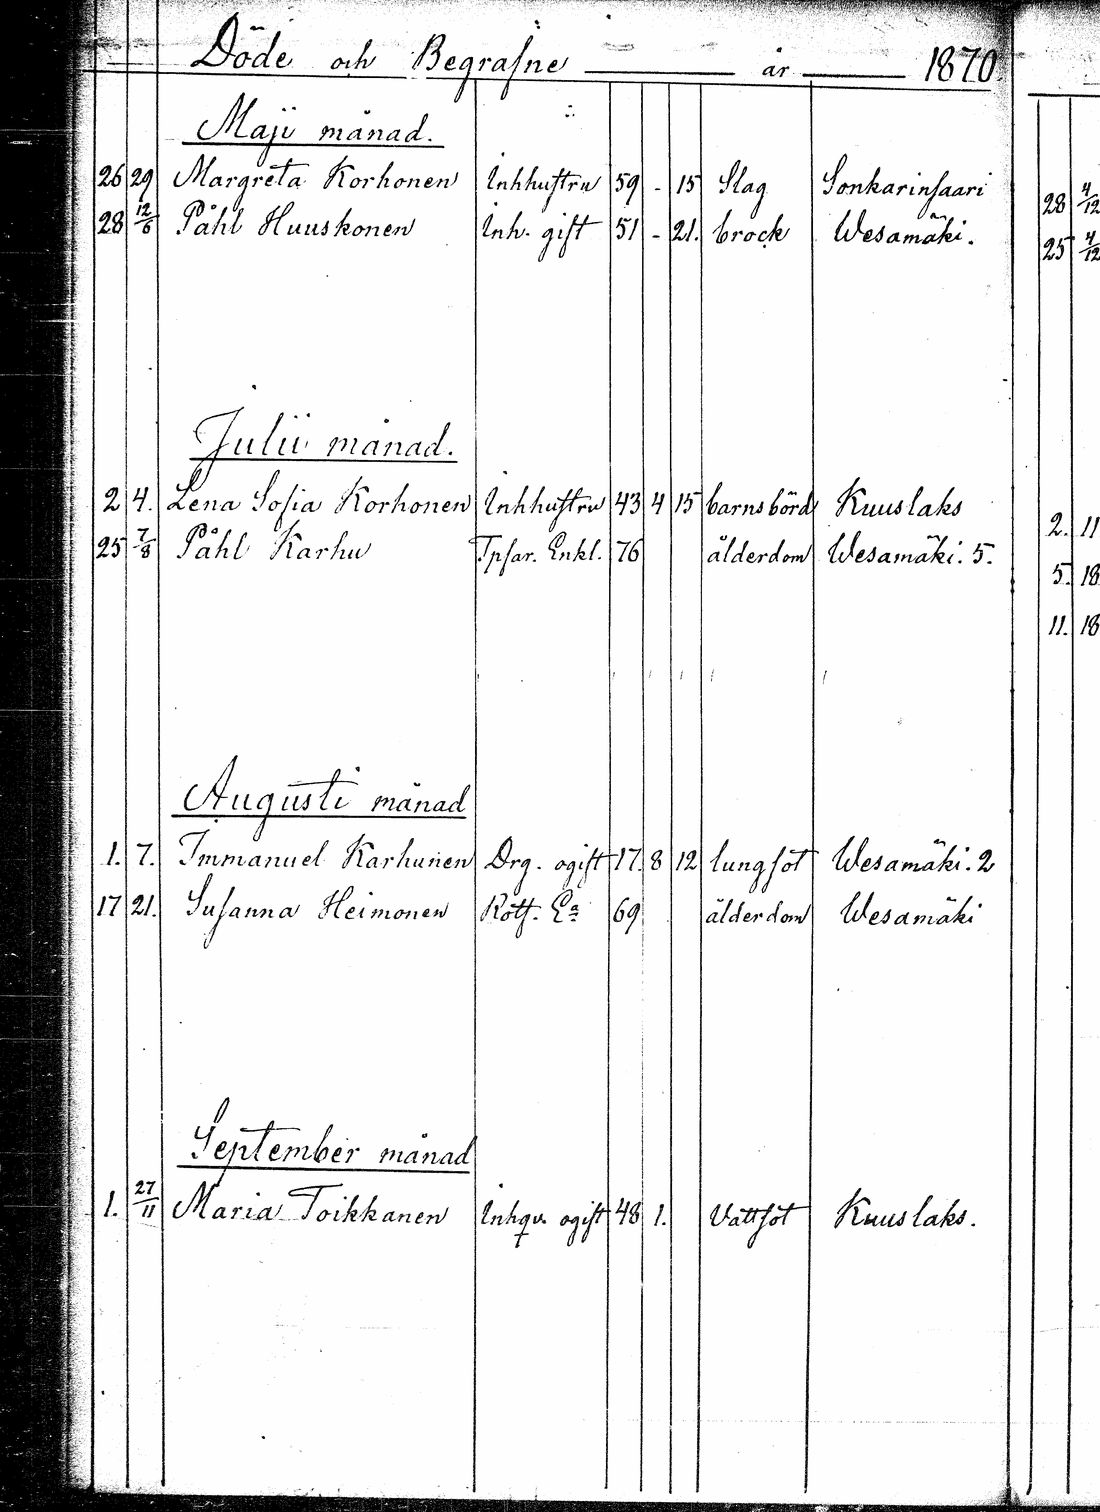 Döde och Begrafne år 1870
Maji månad.
26 29 Margreta Korhonen Inhhustru 59 - 15 Slag Sonkarinsaari
28 12/6 Påhl Huuskonen Inh. gift 51 - 21. brock Wesamäki.
Julii månad.
2 4. Lena Sofia Korhonen Inhhustru 43 4 15 barnsbörd Kuuslaks
25 7/8 Påhl Karhu Tpfar. Enkl. 76 ålderdom Wesamäki. 5.
Augusti månad
1. 7. Immanuel Karhunen Drg. ogift 17. 8 12 lungsot Wesamäki. 2
17 21. Susanna Heimonen Rotf. Ea 69 ålderdom Wesamäki
September månad
1. 27/11 Maria Toikkanen Inhqv. ogift 48 1. Vattsot Kuuslaks.
28 4/12
25 4/12
2. 11
5. 18
11. 18